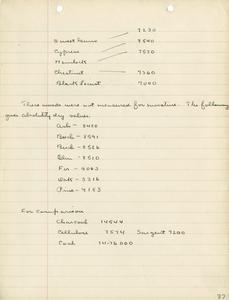 7230
Sweet Gum 7540
Cypress 7520
Hemlock
Chestnut 7360
Black Locust 7000
These woods were not measured for moisture. The following
gives absolutely dry values.
Ash - 8480
Beech - 8591
Birch - 8586
Elm - 8510
Fir - 9063
Oak - 8316
Pine - 9153
For comparison
Charcoal 14544
Cellulose 7574 Sargent 7200
Coal 14-16000